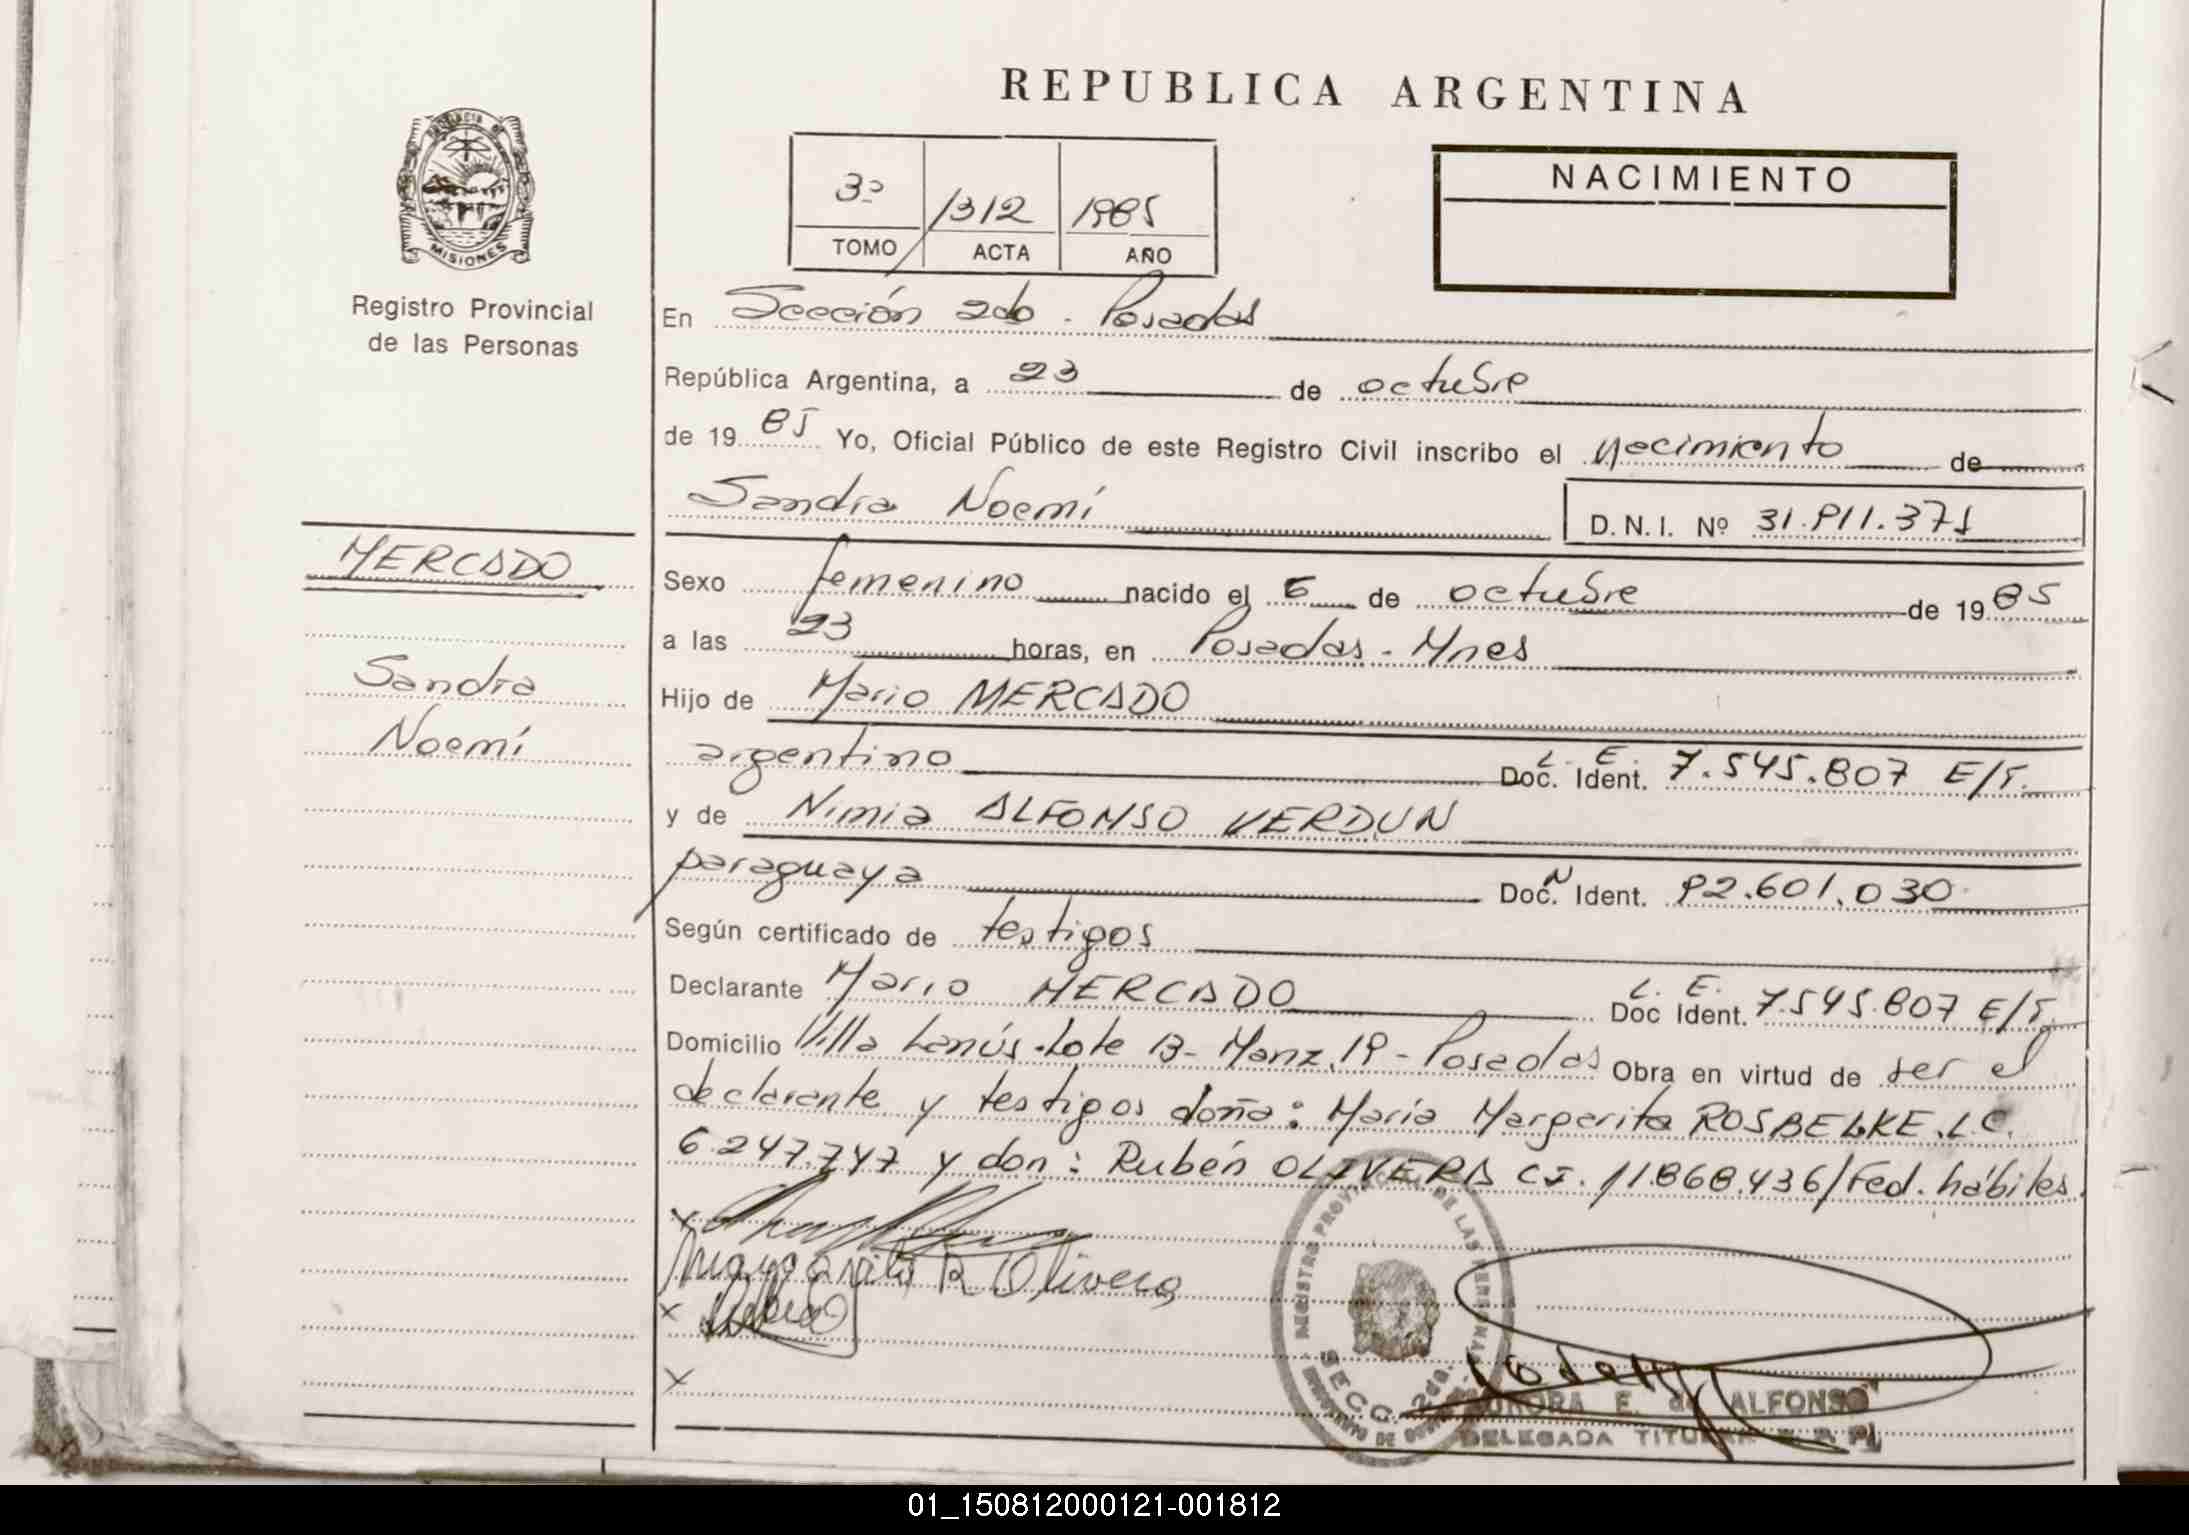 REPUBLICA ARGENTINA
3º 1312 1985
TOMO ACTA AÑO
NACIMIENTO
MISIONES
Registro Provincial
de las Personas
En Sección 2da - Posadas
República Argentina, a 23 de octubre
de 1985 Yo, Oficial Público de este Registro Civil inscribo el nacimiento de
Sandra Noemí D.N.I. Nº 31.911.371
MERCADO
Sandra
Noemí
Sexo femenino nacido el 6 de octubre de 1985
a las 23 horas, en Posadas - Mnes
Hijo de Mario MERCADO
argentino L. E. Doc. Ident. 7.545.807 E/T.
y de Nimia ALFONSO VERDUN
paraguaya Doc. N Ident. 92.601.030
Según certificado de testigos
Declarante Mario MERCADO L. E. Doc Ident. 7.545.807 E/T.
Domicilio Villa Lanús - Lote 13 - Manz. 19 - Posadas Obra en virtud de ser el
declarante y testigos doña: María Margarita ROSBELKE. L.C.
6.247.747 y don: Rubén OLIVERA CI. 11.868.436/Fed. hábiles.
x
Margarita R Olivera
x
x
REGISTRO PROVINCIAL DE LAS PERSONAS
SECC. 2da.
E. de ALFONSO
DELEGADA TITULAR
01_150812000121-001812